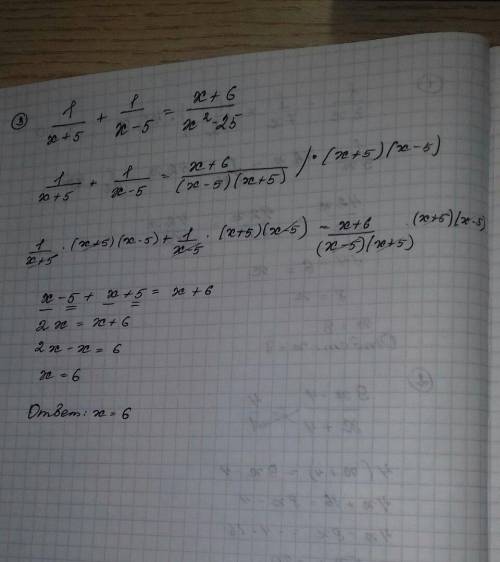 ③ 1/(x+5) + 1/(x-5) = (x+6)/(x²-25)
1/(x+5) + 1/(x-5) = (x+6)/((x-5)(x+5)) /·(x+5)(x-5)
1/(x+5) ·(x+5)(x-5) + 1/(x-5) ·(x+5)(x-5) = (x+6)/((x-5)(x+5)) ·(x+5)(x-5)
x-5 + x+5 = x+6
2x = x+6
2x-x = 6
x = 6
Ответ: x = 6